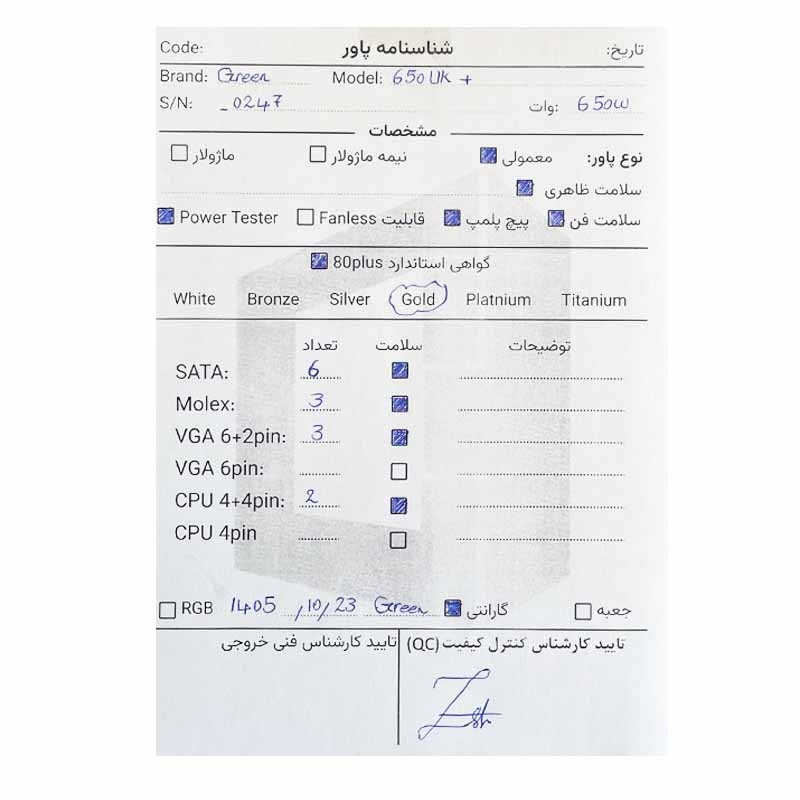 Code: شناسنامه پاور تاریخ:
Brand: Green Model: 650 UK +
S/N: _0247 وات: 650W
مشخصات
نوع پاور: معمولی نیمه ماژولار ماژولار
سلامت ظاهری
سلامت فن پیچ پلمپ قابلیت Fanless Power Tester
گواهی استاندارد 80plus
White Bronze Silver Gold Platnium Titanium
تعداد سلامت توضیحات
SATA: 6
Molex: 3
VGA 6+2pin: 3
VGA 6pin:
CPU 4+4pin: 2
CPU 4pin
RGB 1405/10/23 Green گارانتی جعبه
تایید کارشناس کنترل کیفیت (QC) تایید کارشناس فنی خروجی